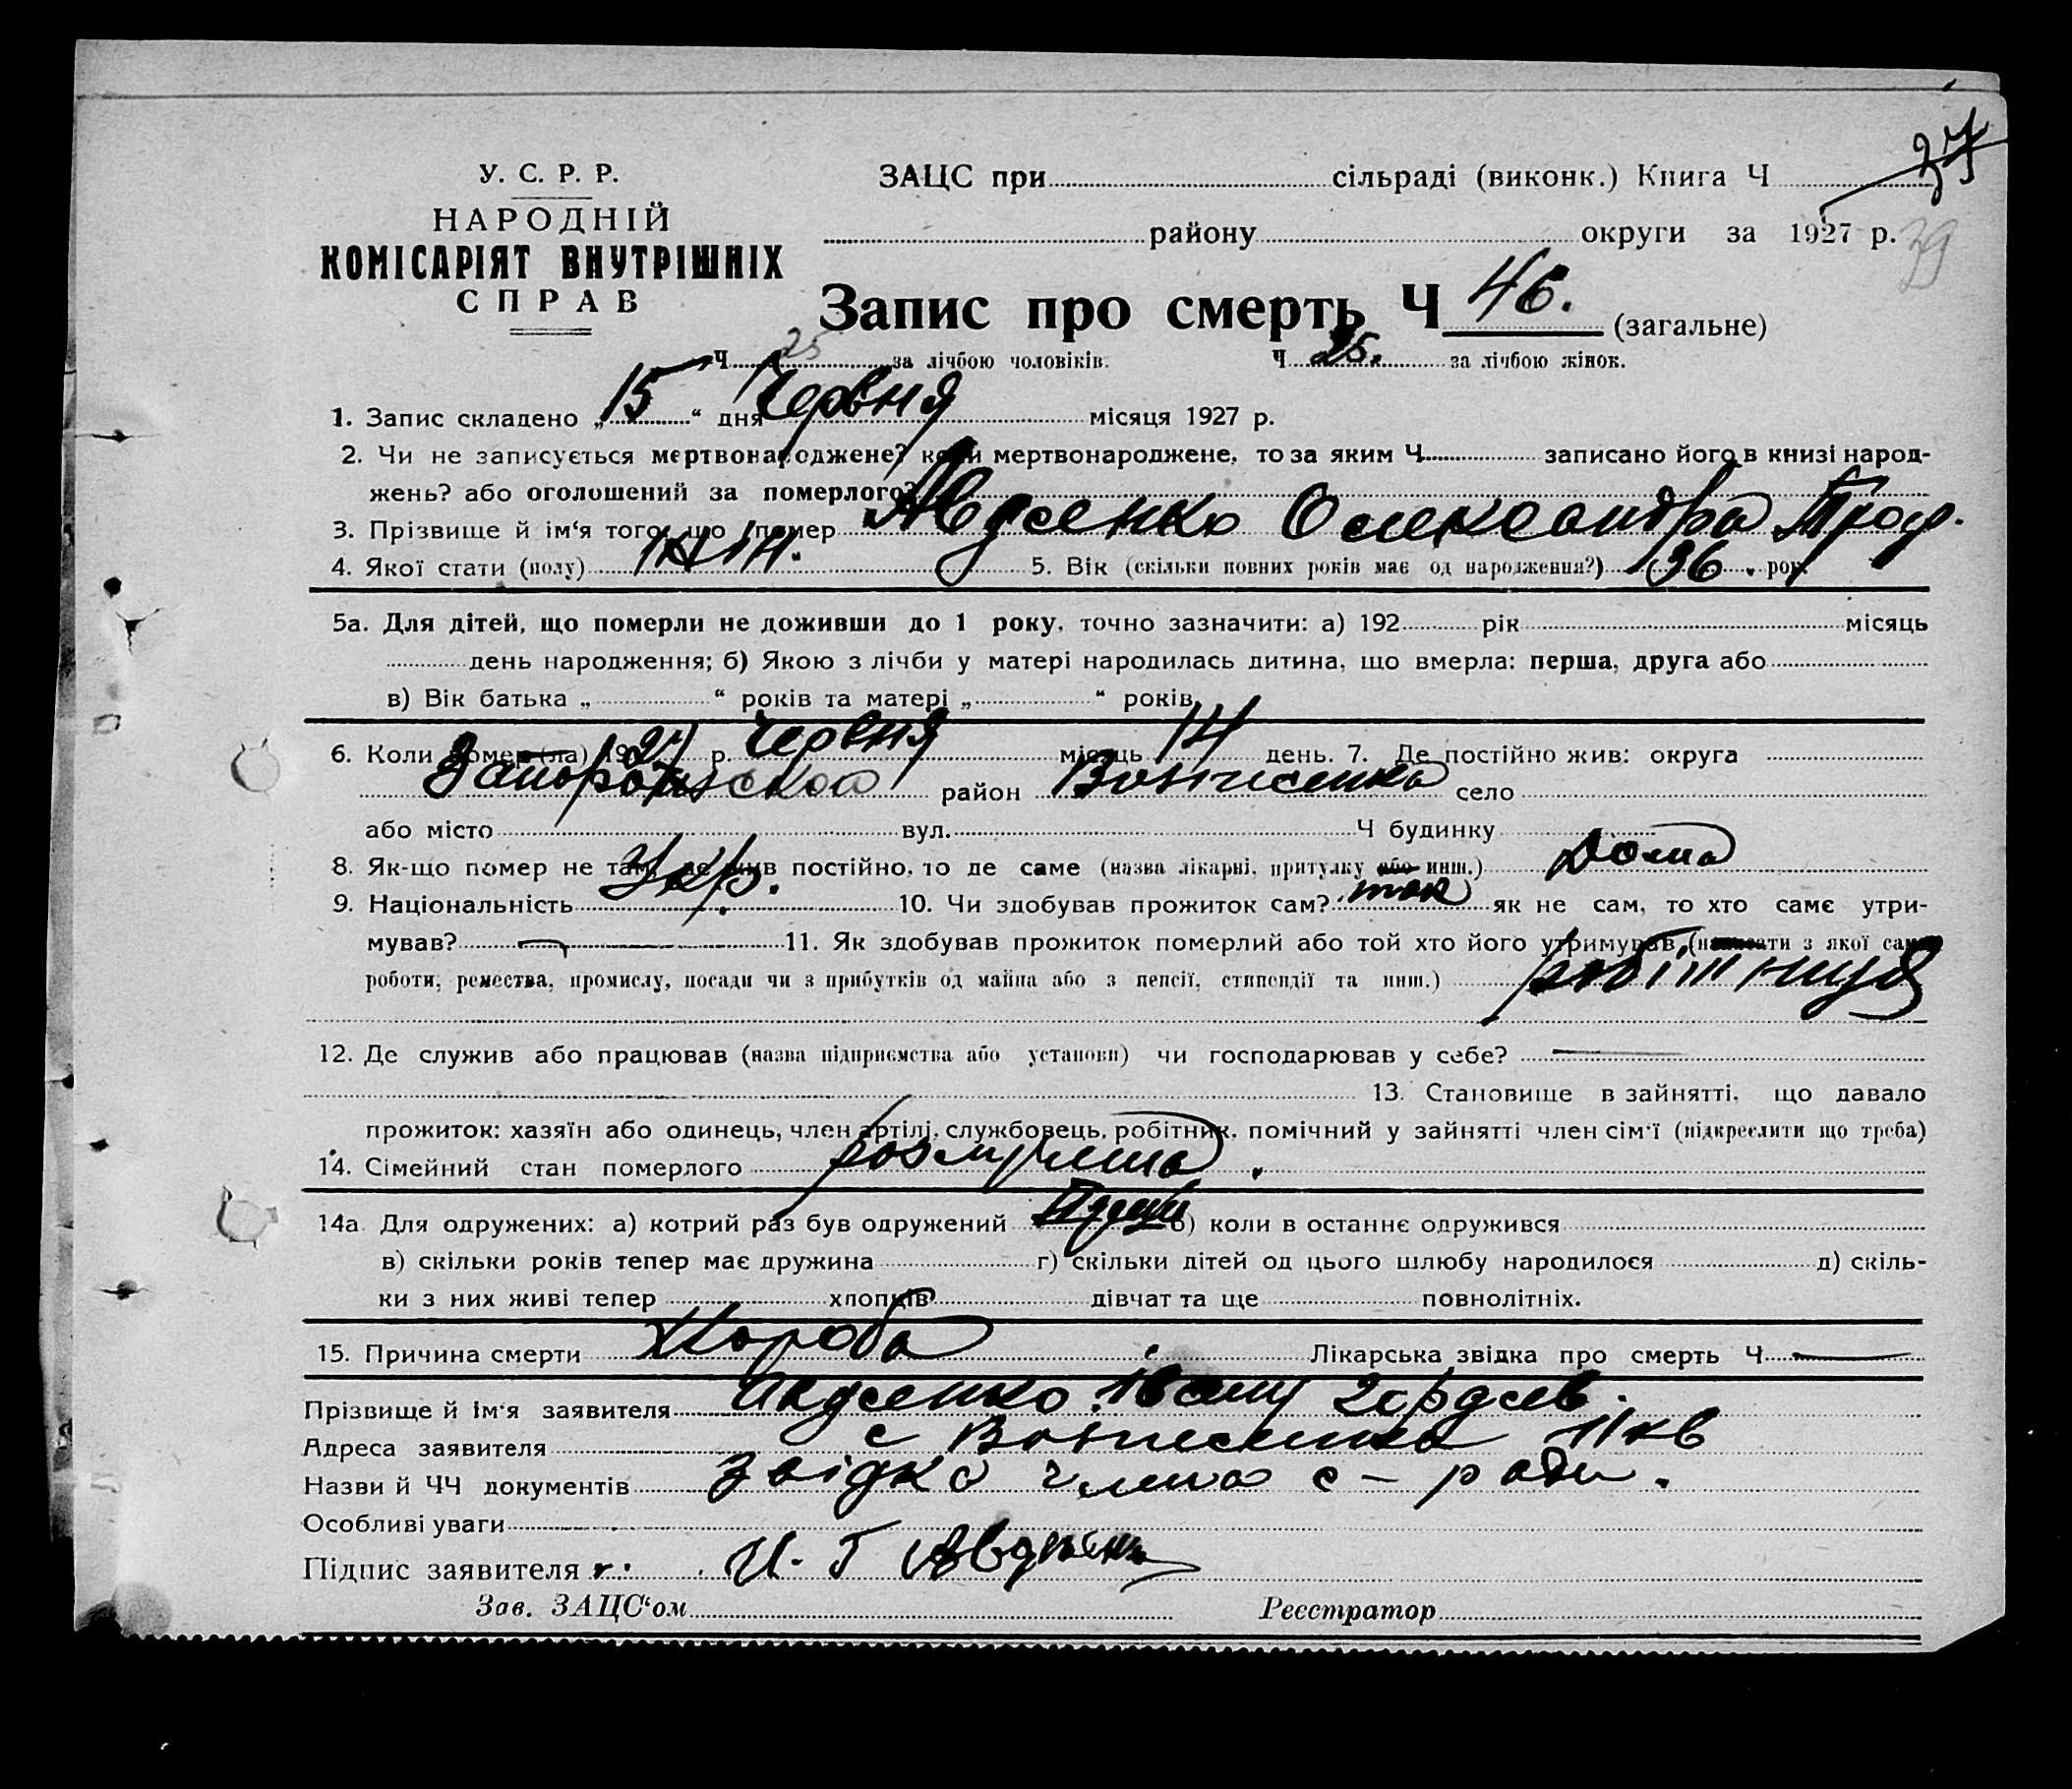 37
У. С. Р. Р.
НАРОДНІЙ
КОМІСАРІЯТ ВНУТРІШНІХ
СПРАВ
ЗАЦС при сільраді (виконк.) Книга Ч
району округи за 1927 р. 39
Запис про смерть Ч 46. (загальне)
Ч 25 за лічбою чоловіків. Ч 25. за лічбою жінок.
1. Запис складено „15“ дня Червня місяця 1927 р.
2. Чи не записується мертвонароджене? коли мертвонароджене, то за яким Ч записано його в книзі народ-
жень? або оголошений за померлого?
3. Прізвище й ім‘я того, що помер Авдєенко Олександра Троф.
4. Якої стати (полу) жін. 5. Вік (скільки повних років має од народження?) 36. рок.
5а. Для дітей, що померли не доживши до 1 року, точно зазначити: а) 192 рік місяць
день народження; б) Якою з лічби у матері народилась дитина, що вмерла: перша, друга або
в) Вік батька „ “ років та матері „ “ років.
6. Коли помер (ла) 1927 р. Червня місяць 14 день. 7. Де постійно жив: округа
Запорожской район Вознисенка село
або місто вул. Ч будинку
8. Як-що помер не там, де жив постійно, то де саме (назва лікарні, притулку або инш.) Дома
9. Національність Укр. 10. Чи здобував прожиток сам? так як не сам, то хто самє утри-
мував? 11. Як здобував прожиток померлий або той хто його утримував (написати з якої саме
роботи, ремества, промислу, посади чи з прибутків од майна або з пенсії, стипендії та инш.) робітниця
12. Де служив або працював (назва підприємства або установи) чи господарював у себе?
13. Становище в зайнятті, що давало
прожиток: хазяїн або одинець, член артілі, службовець, робітник, помічний у зайнятті член сім‘ї (підкреслити що треба)
14. Сімейний стан померлого
14а. Для одружених: а) котрий раз був одружений б) коли в останнє одружився
в) скільки років тепер має дружина г) скільки дітей од цього шлюбу народилося д) скіль-
ки з них живі тепер хлопців дівчат та ще повнолітніх.
15. Причина смерти Хороба Лікарська звідка про смерть Ч
Прізвище й ім‘я заявителя Авдєенко Гордєев.
Адреса заявителя с Вознисенка 11 кв
Назви й ЧЧ документів Звідка члена с-ради.
Особливі уваги
Підпис заявителя И. Г
Зав. ЗАЦС‘ом Реєстратор